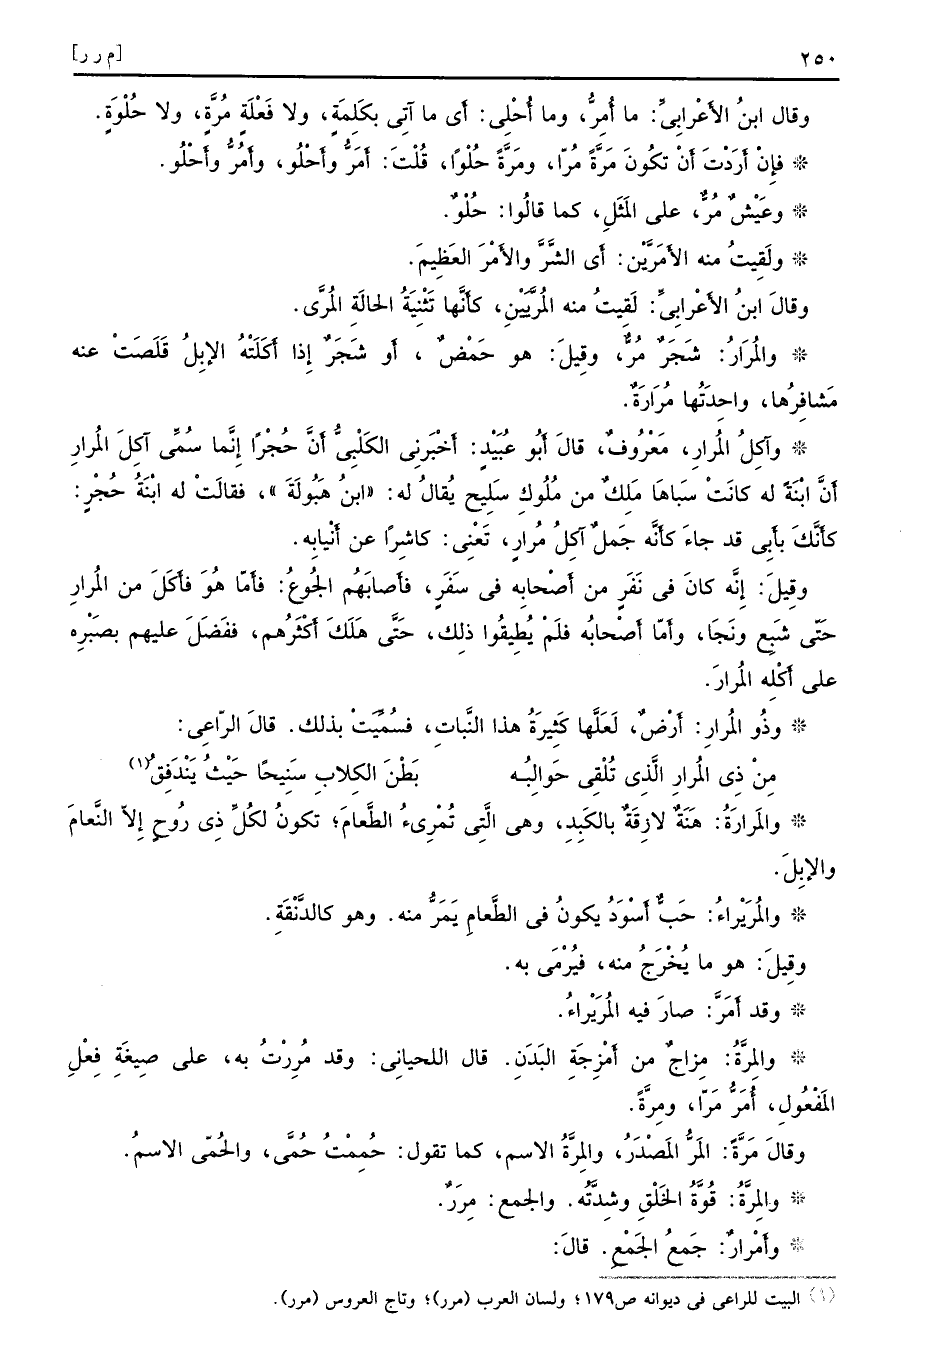 ٢٥٠ [م ر ر]
وقال ابنُ الأَعْرابِىِّ: ما أُمِرُّ، وما أُحْلِى: أى ما آتِى بكَلِمَةٍ، ولا فَعْلَةٍ مُرَّة، ولا حُلْوَةٍ.
* فإنْ أَرَدْتَ أَنْ تكُونَ مَرَّةً مُرّا، ومَرَّةً حُلْوًا، قُلْتَ: أَمَرُّ وأَحْلُو، وأَمُرُّ وأَحْلُو.
* وعَيْشٌ مُرٌّ، على المَثَلِ، كما قالُوا: حُلْوٌ.
* ولَقِيتُ منه الأَمَرَّيْن: أى الشَّرَّ والأَمْرَ العَظِيمَ.
وقالَ ابنُ الأَعْرابِىِّ: لَقِيتُ منه المُرَّيَيْنِ، كأنَّها تَثْنِيَةُ الحالَةِ المُرَّى.
* والمُرَارُ: شَجَرٌ مُرٌّ، وقِيلَ: هو حَمْضٌ ، أو شَجَرٌ إذا أَكَلَتْهُ الإبلُ قَلَصَتْ عنه
مَشافِرُها، واحِدَتُها مُرَارَةٌ.
* وآكِلُ المُرارِ، مَعْرُوفٌ، قالَ أَبُو عُبَيْدٍ: أَخْبَرنِى الكَلْبِىُّ أنَّ حُجْرًا إنَّما سُمِّى آكِلَ المُرارِ
أنَّ ابْنَةً له كانَتْ سَباهَا مَلِكٌ من مُلُوكِ سَلِيح يُقالُ له: «ابنُ هَبُولَةَ »، فقالَتْ له ابْنَةُ حُجْرٍ:
كأنَّكَ بأَبِى قد جاءَ كأنَّه جَملٌ آكلُ مُرارٍ، تَعْنِى: كاشِرًا عن أَنْيابِه.
وقِيلَ: إنَّه كانَ فى نَفَرٍ من أَصْحابِه فى سَفَرٍ، فأَصابَهُم الجُوعُ: فأَمّا هُوَ فأَكَلَ من المُرارِ
حَتّى شَبِعَ ونَجَا، وأَمّا أَصْحابُه فلَمْ يُطِيقُوا ذلك، حَتَّى هَلَكَ أَكْثَرُهم، ففَضَلَ عليهم بصَبْرِه
على أَكْلِه المُرارَ.
* وذُو المُرارِ: أَرْضٌ، لَعَلَّها كَثِيرَةُ هذا النَّباتِ، فسُمِّيَتْ بذلك. قالَ الرّاعِى:
مِنْ ذِى المُرارِ الَّذِى تُلْقِى حَوالِبُـه بَطْنَ الكِلابِ سَنِيحًا حَيْثُ يَنْدَفِقُ(١)
* والمَرارَةُ: هَنَةٌ لازِقَةٌ بالكَبِدِ، وهى الَّتِى تُمْرِىءُ الطَّعامَ؛ تكونُ لكُلِّ ذِى رُوحٍ إلاّ النَّعامَ
والإبِلَ.
* والمُرَيْراءُ: حَبٌّ أَسْوَدُ يكونُ فى الطَّعامِ يَمَرُّ منه. وهو كالدَّنْقَةِ.
وقِيلَ: هو ما يُخْرَجُ منه، فيُرْمَى به.
* وقد أَمَرَّ: صارَ فيه المُرَيْراءُ.
* والمِرَّةُ: مِزاجٌ من أَمْزِجَةِ البَدَنِ. قال اللحيانى: وقد مُرِرْتُ به، على صِيغَةِ فِعْلِ
المَفْعُولِ، أُمَرُّ مَرّا، ومِرَّةً.
وقالَ مَرَّةً: المَرُّ المَصْدَرُ، والمِرَّةُ الاسم، كما تقول: حُمِمْتُ حُمَّى، والحُمّى الاسمُ.
* والمِرَّةُ: قُوَّةُ الخَلْقِ وشِدَّتُه. والجمع: مِرَرٌ.
* وأَمْرارٌ: جَمعُ الجَمْعِ. قالَ:
(١) البيت للراعى فى ديوانه ص١٧٩؛ ولسان العرب (مرر)؛ وتاج العروس (مرر).